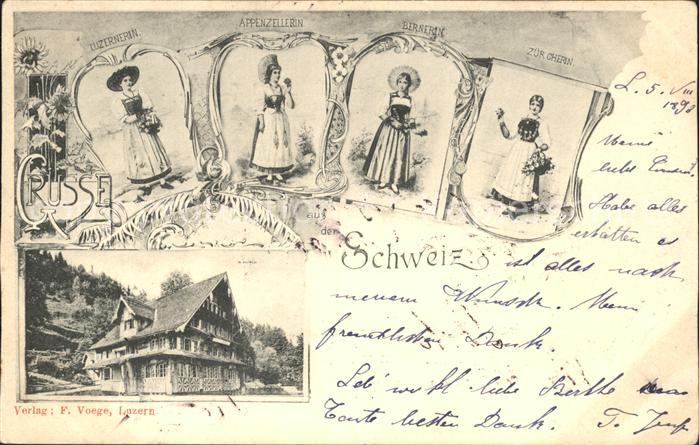 LUZERNERIN.
APPENZELLERIN
BERNERIN.
ZÜRCHERIN.
GRÜSSE
aus
der
Schweiz
L. 5. VIII
1898
Meine
liebe
Habe alles
erhalten es
ist alles nach
meinem Wunsch. Mein
freundlichsten Dank.
Leb' wohl liebe Berthe
Tante besten Dank. T.
Verlag: F. Voege, Luzern